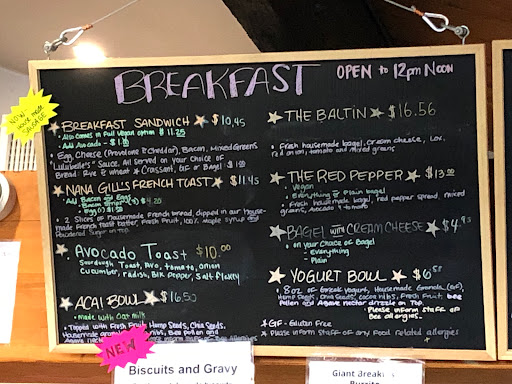 BREAKFAST OPEN to 12pm NOON
NOW
SAUSAGE
BREAKFAST SANDWICH $10.45
• Also comes in Full Vegan option $11.25
• Add Avocado - $1.
• Egg, Cheese (Provolone & Cheddar), Bacon, Mixed Greens
"Lulubelle's" Sauce. All served on your Choice of
Bread: Rye & wheat Croissant, GF or Bagel
NANA GILL'S FRENCH TOAST $11.45
• Add Bacon and Egg
• Egg (1)
• 2 Slices of Housemade French bread, dipped in our House-
made French toast batter, Fresh Fruit, 100% Maple Syrup and
Powdered Sugar on Top
Avocado Toast $10.00
Sourdough Toast, Avo, tomato, onion
Cucumber, radish, Blk Pepper, Salt Flakey
ACAI BOWL $16.50
• made with Oat milk
• Topped with Fresh Fruit, Hemp Seeds, Chia Seeds,
Housemade granola, Bee Pollen and
Agave Nectar
THE BALTIN $16.56
• Fresh housemade bagel, cream cheese, Lox,
red onion, tomato and mixed greens
THE RED PEPPER $13.00
• Vegan
• Everything or Plain bagel
• Fresh housemade bagel, red pepper spread, mixed
greens, Avocado & tomato
BAGEL WITH CREAM CHEESE $4.
• on your choice of Bagel
- Everything
- Plain
YOGURT BOWL $6.50
• 8oz of Greek yogurt, Housemade Granola (GF),
Hemp Seeds, Chia Seeds, cacao nibs, Fresh Fruit, Bee
Pollen and Agave nectar drizzle on Top.
• Please inform staff of
Bee allergies.
GF - Gluten Free
Please inform Staff of any Food related allergies
NEW
Biscuits and Gravy
Giant Breakfast
Burrito